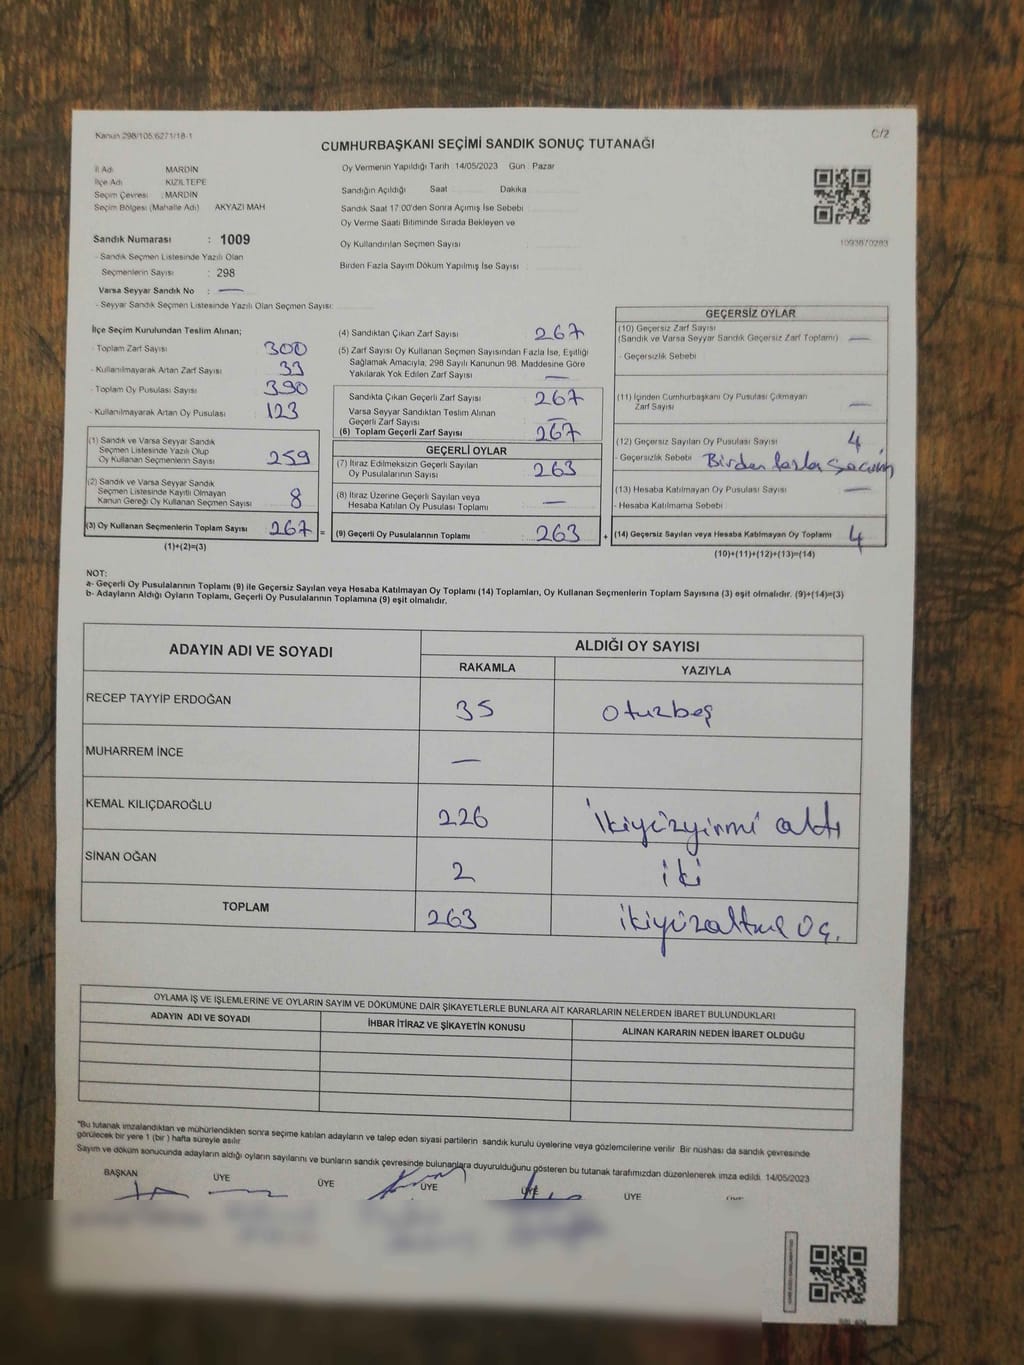 Kanun 298/105,6271/18-1
C/2
CUMHURBAŞKANI SEÇİMİ SANDIK SONUÇ TUTANAĞI
İl Adı MARDİN
İlçe Adı KIZILTEPE
Seçim Çevresi : MARDİN
Seçim Bölgesi (Mahalle Adı) AKYAZI MAH
Sandık Numarası : 1009
- Sandık Seçmen Listesinde Yazılı Olan
Seçmenlerin Sayısı : 298
Varsa Seyyar Sandık No : —
- Seyyar Sandık Seçmen Listesinde Yazılı Olan Seçmen Sayısı:
Oy Vermenin Yapıldığı Tarih : 14/05/2023 Gün : Pazar
Sandığın Açıldığı Saat Dakika
Sandık Saat 17:00'den Sonra Açımış İse Sebebi
Oy Verme Saati Bitiminde Sırada Bekleyen ve
Oy Kullandırılan Seçmen Sayısı
Birden Fazla Sayım Döküm Yapılmış İse Sayısı
1093870283
İlçe Seçim Kurulundan Teslim Alınan;
- Toplam Zarf Sayısı 300
- Kullanılmayarak Artan Zarf Sayısı 33
- Toplam Oy Pusulası Sayısı 390
- Kullanılmayarak Artan Oy Pusulası 123
(1) Sandık ve Varsa Seyyar Sandık
Seçmen Listesinde Yazılı Olup
Oy Kullanan Seçmenlerin Sayısı 259
(2) Sandık ve Varsa Seyyar Sandık
Seçmen Listesinde Kayıtlı Olmayan
Kanun Gereği Oy Kullanan Seçmen Sayısı 8
(3) Oy Kullanan Seçmenlerin Toplam Sayısı 267 =
(1)+(2)=(3)
(4) Sandıktan Çıkan Zarf Sayısı 267
(5) Zarf Sayısı Oy Kullanan Seçmen Sayısından Fazla İse, Eşitliği
Sağlamak Amacıyla, 298 Sayılı Kanunun 98. Maddesine Göre
Yakılarak Yok Edilen Zarf Sayısı —
Sandıkta Çıkan Geçerli Zarf Sayısı 267
Varsa Seyyar Sandıktan Teslim Alınan
Geçerli Zarf Sayısı —
(6) Toplam Geçerli Zarf Sayısı 267
GEÇERLİ OYLAR
(7) İtiraz Edilmeksizin Geçerli Sayılan
Oy Pusulalarının Sayısı 263
(8) İtiraz Üzerine Geçerli Sayılan veya
Hesaba Katılan Oy Pusulası Toplamı —
(9) Geçerli Oy Pusulalarının Toplamı 263 +
GEÇERSİZ OYLAR
(10) Geçersiz Zarf Sayısı
(Sandık ve Varsa Seyyar Sandık Geçersiz Zarf Toplamı) —
- Geçersizlik Sebebi
(11) İçinden Cumhurbaşkanı Oy Pusulası Çıkmayan
Zarf Sayısı —
(12) Geçersiz Sayılan Oy Pusulası Sayısı 4
- Geçersizlik Sebebi Birden fazla seçim
(13) Hesaba Katılmayan Oy Pusulası Sayısı —
- Hesaba Katılmama Sebebi
(14) Geçersiz Sayılan veya Hesaba Katılmayan Oy Toplamı 4
(10)+(11)+(12)+(13)=(14)
NOT:
a- Geçerli Oy Pusulalarının Toplamı (9) ile Geçersiz Sayılan veya Hesaba Katılmayan Oy Toplamı (14) Toplamları, Oy Kullanan Seçmenlerin Toplam Sayısına (3) eşit olmalıdır. (9)+(14)=(3)
b- Adayların Aldığı Oyların Toplamı, Geçerli Oy Pusulalarının Toplamına (9) eşit olmalıdır.
ADAYIN ADI VE SOYADI ALDIĞI OY SAYISI
RAKAMLA YAZIYLA
RECEP TAYYİP ERDOĞAN 35 Otuzbeş
MUHARREM İNCE —
KEMAL KILIÇDAROĞLU 226 ikiyüzyirmi altı
SİNAN OĞAN 2 iki
TOPLAM 263 ikiyüzaltmış üç.
OYLAMA İŞ VE İŞLEMLERİNE VE OYLARIN SAYIM VE DÖKÜMÜNE DAİR ŞİKAYETLERLE BUNLARA AİT KARARLARIN NELERDEN İBARET BULUNDUKLARI
ADAYIN ADI VE SOYADI İHBAR İTİRAZ VE ŞİKAYETİN KONUSU ALINAN KARARIN NEDEN İBARET OLDUĞU
"Bu tutanak imzalandıktan ve mühürlendikten sonra seçime katılan adayların ve talep eden siyasi partilerin sandık kurulu üyelerine veya gözlemcilerine verilir. Bir nüshası da sandık çevresinde
görülecek bir yere 1 (bir) hafta süreyle asılır
Sayım ve döküm sonucunda adayların aldığı oyların sayılarını ve bunların sandık çevresinde bulunanlara duyurulduğunu gösteren bu tutanak tarafımızdan düzenlenerek imza edildi. 14/05/2023
BAŞKAN ÜYE ÜYE ÜYE ÜYE ÜYE